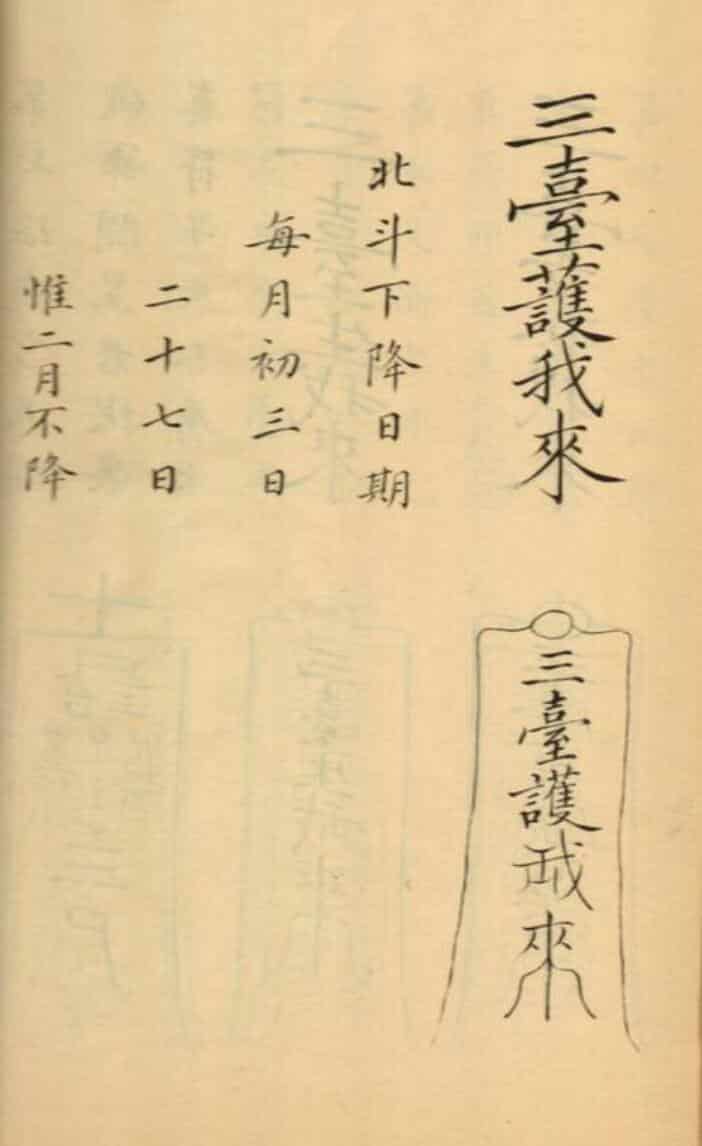 三臺護我來
三臺護我來
北斗下降日期
每月初三日
二十七日
惟二月不降